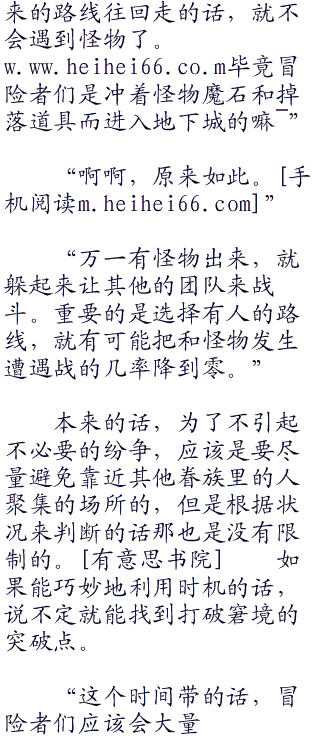 来的路线往回走的话，就不
会遇到怪物了。
w.ww.heihei66.co.m毕竟冒
险者们是冲着怪物魔石和掉
落道具而进入地下城的嘛¯”
“啊啊，原来如此。[手
机阅读m.heihei66.com]”
“万一有怪物出来，就
躲起来让其他的团队来战
斗。重要的是选择有人的路
线，就有可能把和怪物发生
遭遇战的几率降到零。”
本来的话，为了不引起
不必要的纷争，应该是要尽
量避免靠近其他眷族里的人
聚集的场所的，但是根据状
况来判断的话那也是没有限
制的。[有意思书院]　　如
果能巧妙地利用时机的话，
说不定就能找到打破窘境的
突破点。
“这个时间带的话，冒
险者们应该会大量